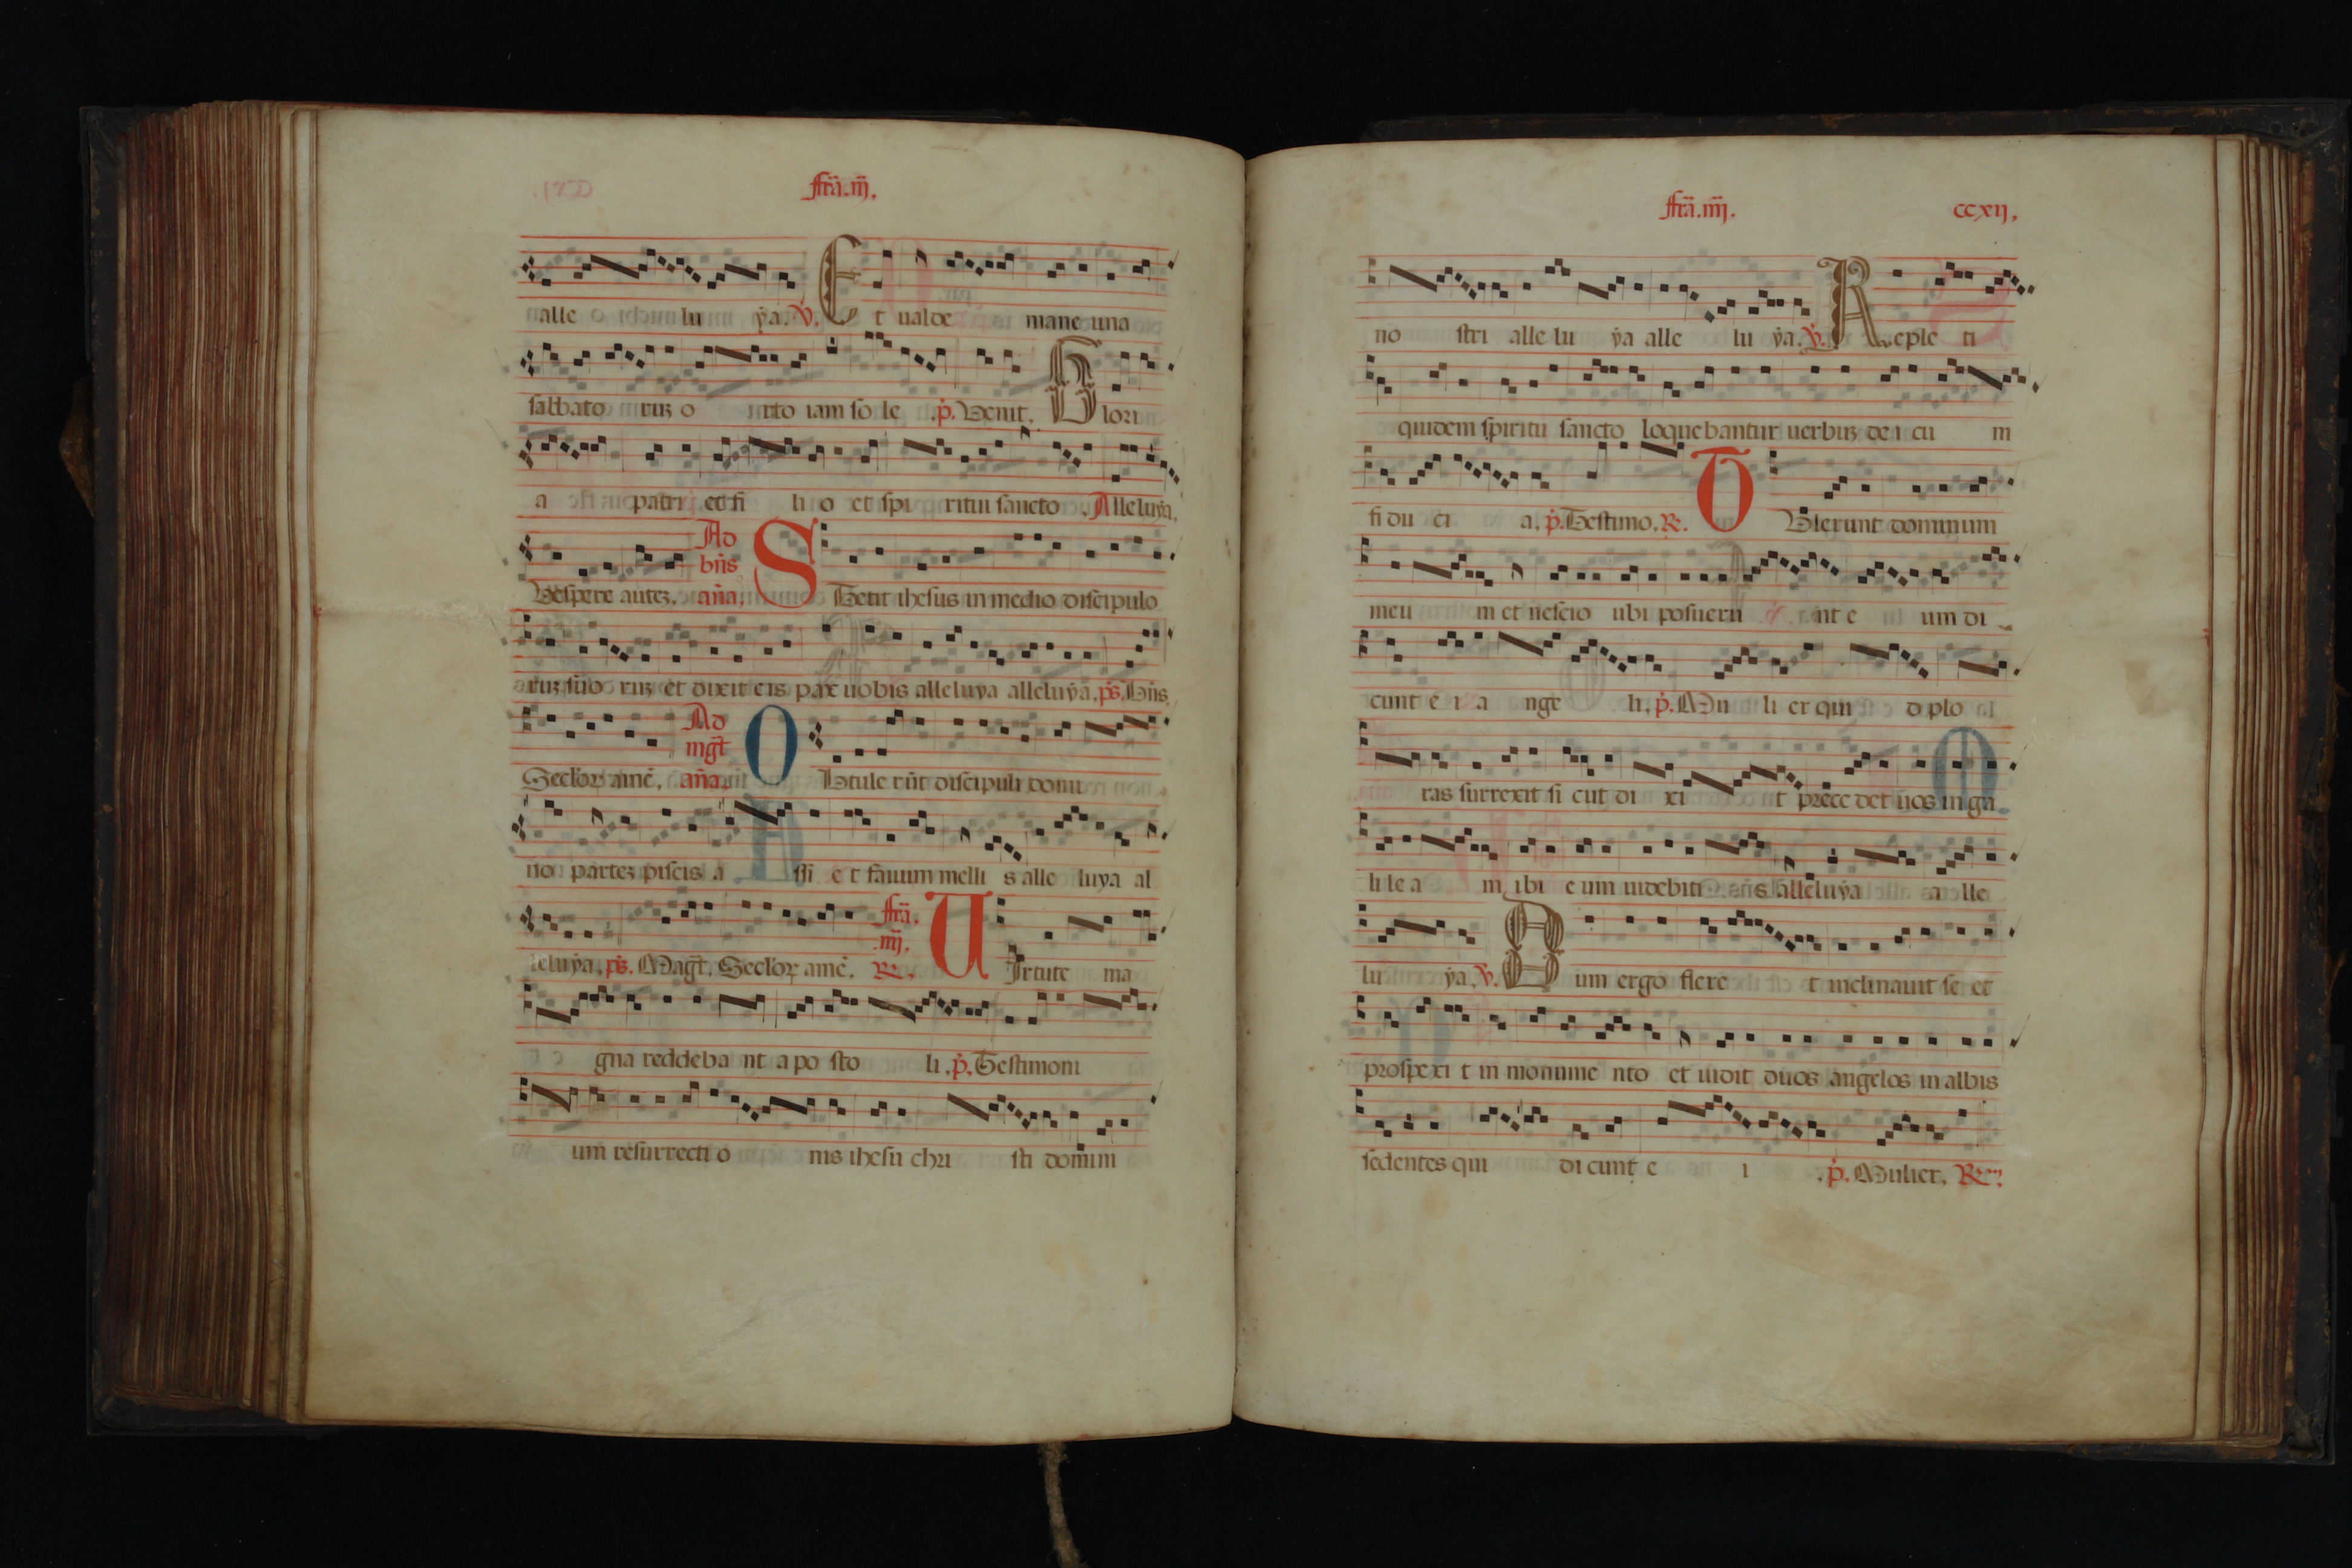 ffrã.iij.
alle lu ẏa. ℣. Et ualde mane una
sabbatoruʒ orto iam sole .p̍. Uenit. Glori
a patri et fi li o et spi ritui sancto . Alleluẏa.
Uespere auteʒ. Ad bñs aña. Stetit ihesus in medio discipulo
ruʒ suo ruʒ et dixit eis pax uobis alleluya alleluẏa. p̍s. Bñs
Seclor̍ amẽ. Ad mgt̃ aña. Obtule rũt discipuli domi
no parteʒ piscis a ssi e t fauum melli s alle luya al
leluẏa. p̍s. Magt̃. Seclor̍ amẽ. ffrã. iiij. R. Uirtute ma
gna reddeba nt a po sto li .p̍. Testimoni
um resurrecti o nis ihesu chri sti domini
ffrã.iiij. ccxij.
no stri alle lu ẏa alle lu ẏa. ℣. Reple ti
quidem spiritu sancto loquebantur uerbuʒ de i cu m
fi du ci a. p̍. Testimo. R. Tulerunt dominum
meu m et nescio ubi posueru nt e um di
cunt e i a nge li. p̍. Mu li er qui d plo
ras surrexit si cut di xi t prece det uos in ga
li le a m ibi e um uidebiti s alleluẏa a lle
lu ẏa. ℣. Dum ergo flere t inclinauit se et
prospexi t in monume nto et uidit duos angelos in albis
sedentes qui di cunt e i .p̍. Mulier. R.